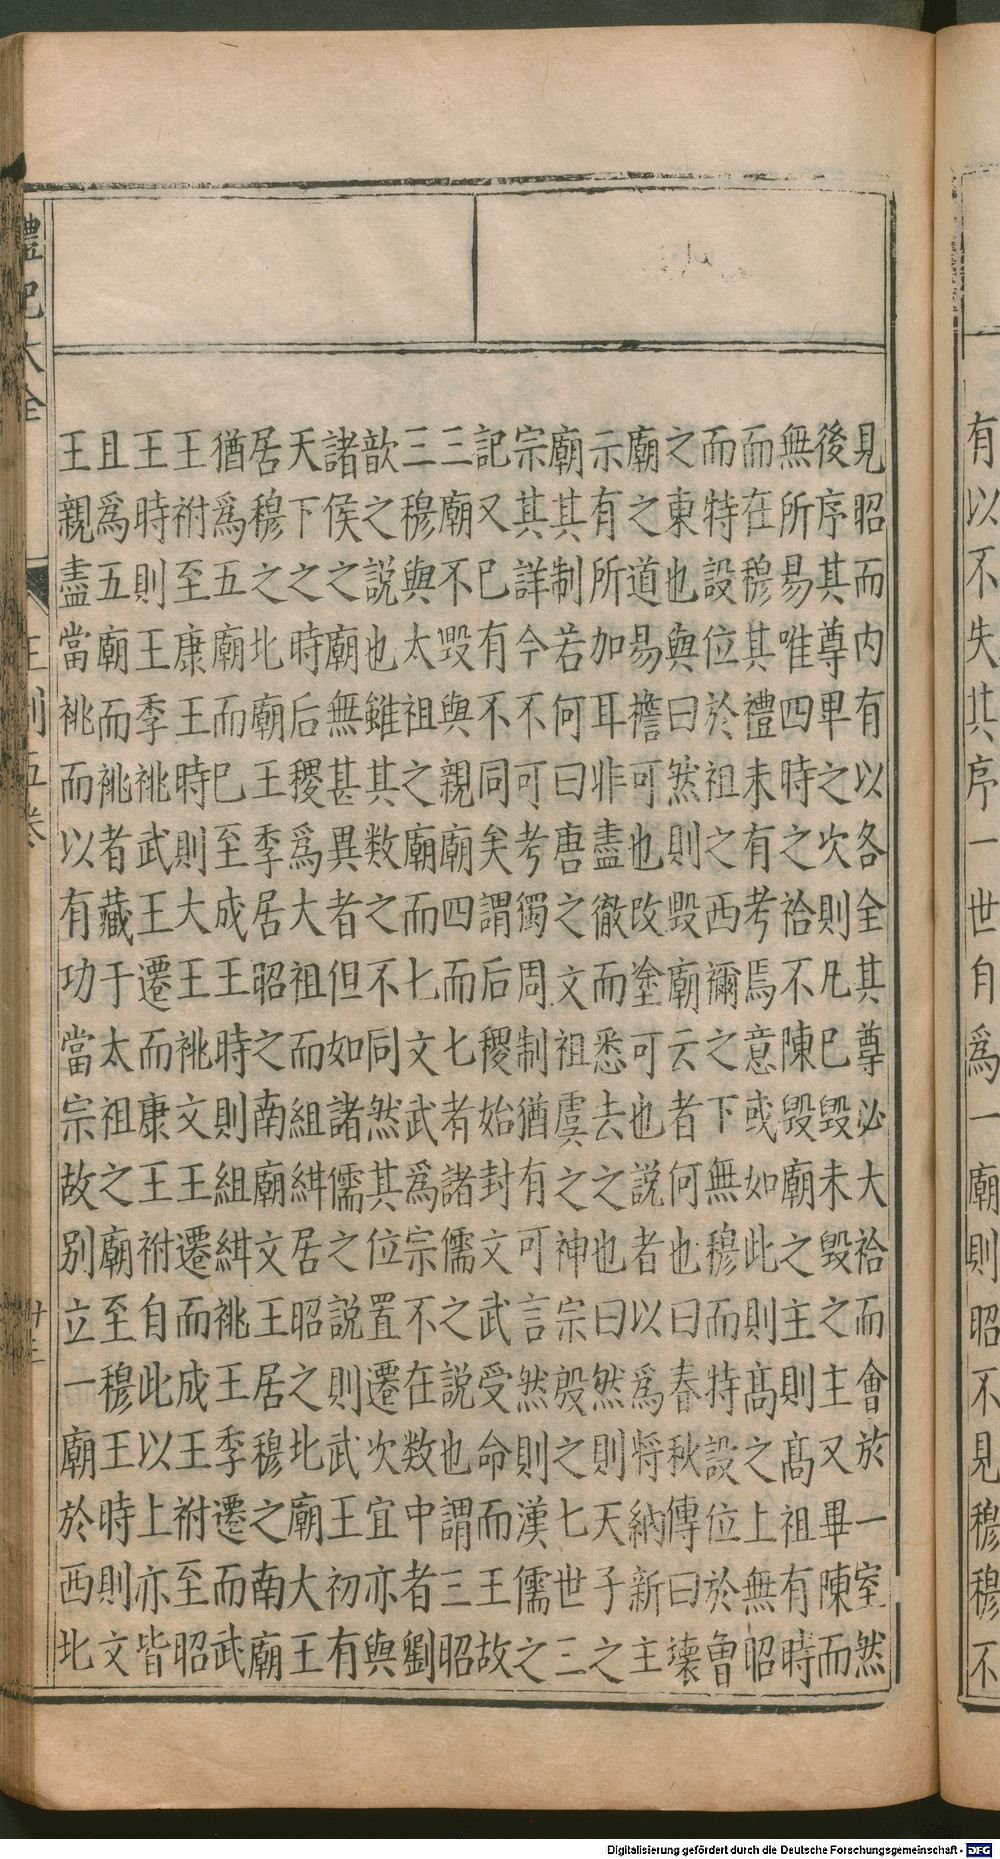 有以不失其序一世自爲一廟則昭不見穆穆不
見昭而内有以各全其尊必大祫而會於一室然
後序其尊卑之次則凡已毀未毀之主又畢陳而
無所易唯四時之祫不陳毀廟之主則高祖有時
而在穆其禮未有考焉意或如此則高之上無昭
而特設位於祖之西禰之下無穆而特設位於曾
之東也與曰然則毀廟云者何也曰春秋傳曰壞
廟之道易檐可也改塗可也說者以爲將納新主
示有所加耳非盡徹而悉去之也曰然則天子之
廟其制若何曰唐之文祖虞之神宗殷之七世三
宗其詳今不可考獨周制猶有可言然則漢儒之
記又已有不同矣謂后稷始封文武受命而王故
三廟不毀與親廟四而七者諸儒之說也謂三昭
三穆與太祖之廟而七文武爲宗不在数中者劉
歆之說也雖其数之不同然其位置遷次宜亦與
諸侯之廟無甚異者但如諸儒之說則武王初有
天下之時后稷爲大祖而組紺居昭之北廟大王
居穆之北廟王季居昭之南廟文王居穆之南廟
猶爲五廟而已至成王時則組紺祧王季遷而武
王祔至康王時則大王祧文王遷而成王祔至昭
王時則王季祧武王遷而康王祔自此以上亦皆
且爲五廟而祧者藏于太祖之廟至穆王時則文
王親盡當祧而以有功當宗故别立一廟於西北
禮記大全 王制五卷 廿三
Digitalisierung gefördert durch die Deutsche Forschungsgemeinschaft - DFG